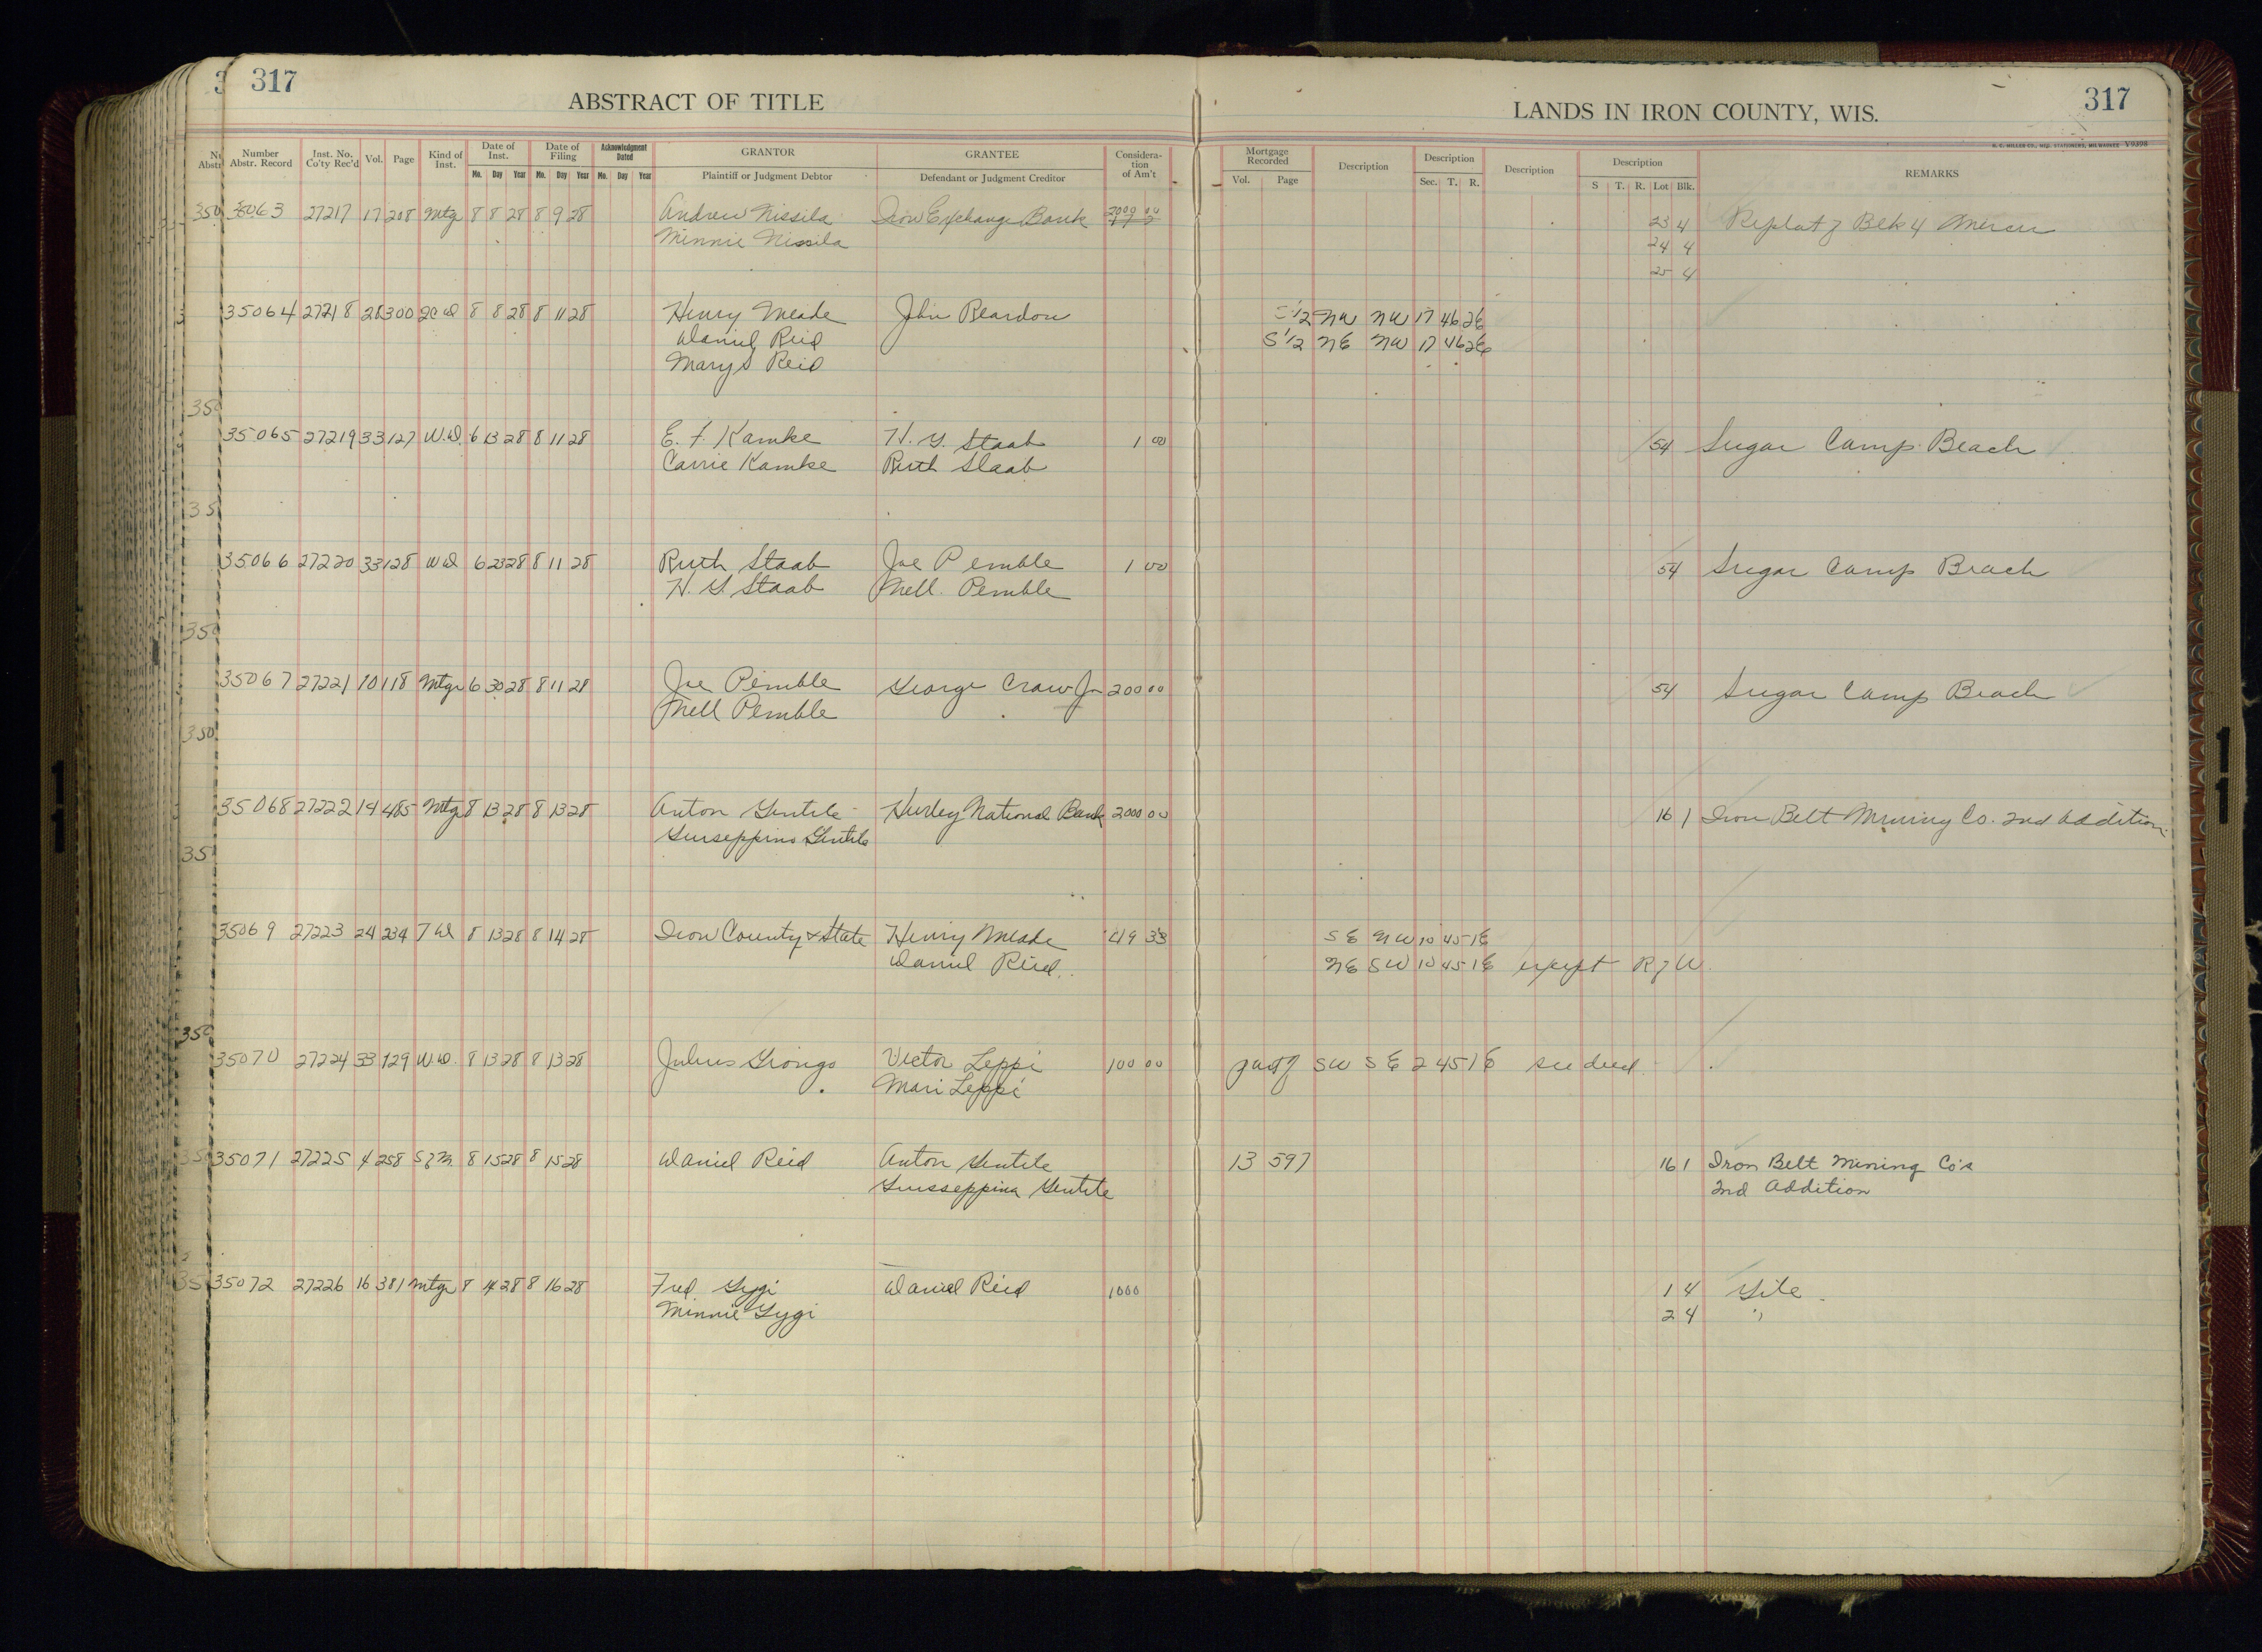 317
ABSTRACT OF TITLE
LANDS IN IRON COUNTY, WIS.
317
H. C. MILLER CO., MFG. STATIONERS, MILWAUKEE V9398
Number Abstr. Record Inst. No. Co'ty Rec'd Vol. Page Kind of Inst. Date of Inst. Mo. Day Year Date of Filing Mo. Day Year Acknowledgment Dated Mo. Day Year GRANTOR Plaintiff or Judgment Debtor GRANTEE Defendant or Judgment Creditor Considera-tion of Am't Mortgage Recorded Vol. Page Decription Description Sec. T. R. Description Description S T. R. Lot Blk. REMARKS
35063 27217 17 208 Mtg 8 8 28 8 9 28 Andrew Nissila Iron Exchange Bank 2000 00 23 4 Replat of Blk 4 Mercer
Minnie Nissila 24 4
25 4
35064 27218 28 300 2CD 8 8 28 8 11 28 Henry Meade John Reardon S 1/2 NW NW 17 46 2E
Daniel Reid S 1/2 NE NW 17 46 2E
Mary S Reid
35065 27219 33 127 W.D. 6 13 28 8 11 28 E. F. Kamke H. G. Staab 1 00 54 Sugar Camp Beach
Carrie Kamke Ruth Staab
35066 27220 33 128 WD 6 23 28 8 11 28 Ruth Staab Joe Pemble 1 00 54 Sugar Camp Beach
H. G. Staab Mell. Pemble
35067 27221 10 118 Mtge 6 30 28 8 11 28 Joe Pemble George Craw Jr 2000 00 54 Sugar Camp Beach
Mell Pemble
35068 27222 14 485 Mtg 8 13 28 8 13 28 Anton Gentile Hurley National Bank 2000 00 16 1 Iron Belt Mining Co. 2nd Addition.
Guiseppino Gentile
35069 27223 24 234 T D 8 13 28 8 14 28 Iron County & State Henry Meade 419 33 SE NW 10 45 1E
Daniel Reid. NE SW 10 45 1E except R of W.
35070 27224 33 129 W.D. 8 13 28 8 13 28 Julius Giongo Victor Leppi 100 00 part of SW SE 2 45 1E see deed
Mari Leppi
35071 27225 4 258 S of M. 8 15 28 8 15 28 Daniel Reid Anton Gentile 13 597 16 1 Iron Belt Mining Co's
Guisseppina Gentile 2nd Addition
35072 27226 16 381 Mtge 8 14 28 8 16 28 Fred Gygi Daniel Reid 1000 1 4 Gile
Minnie Gygi 2 4 "